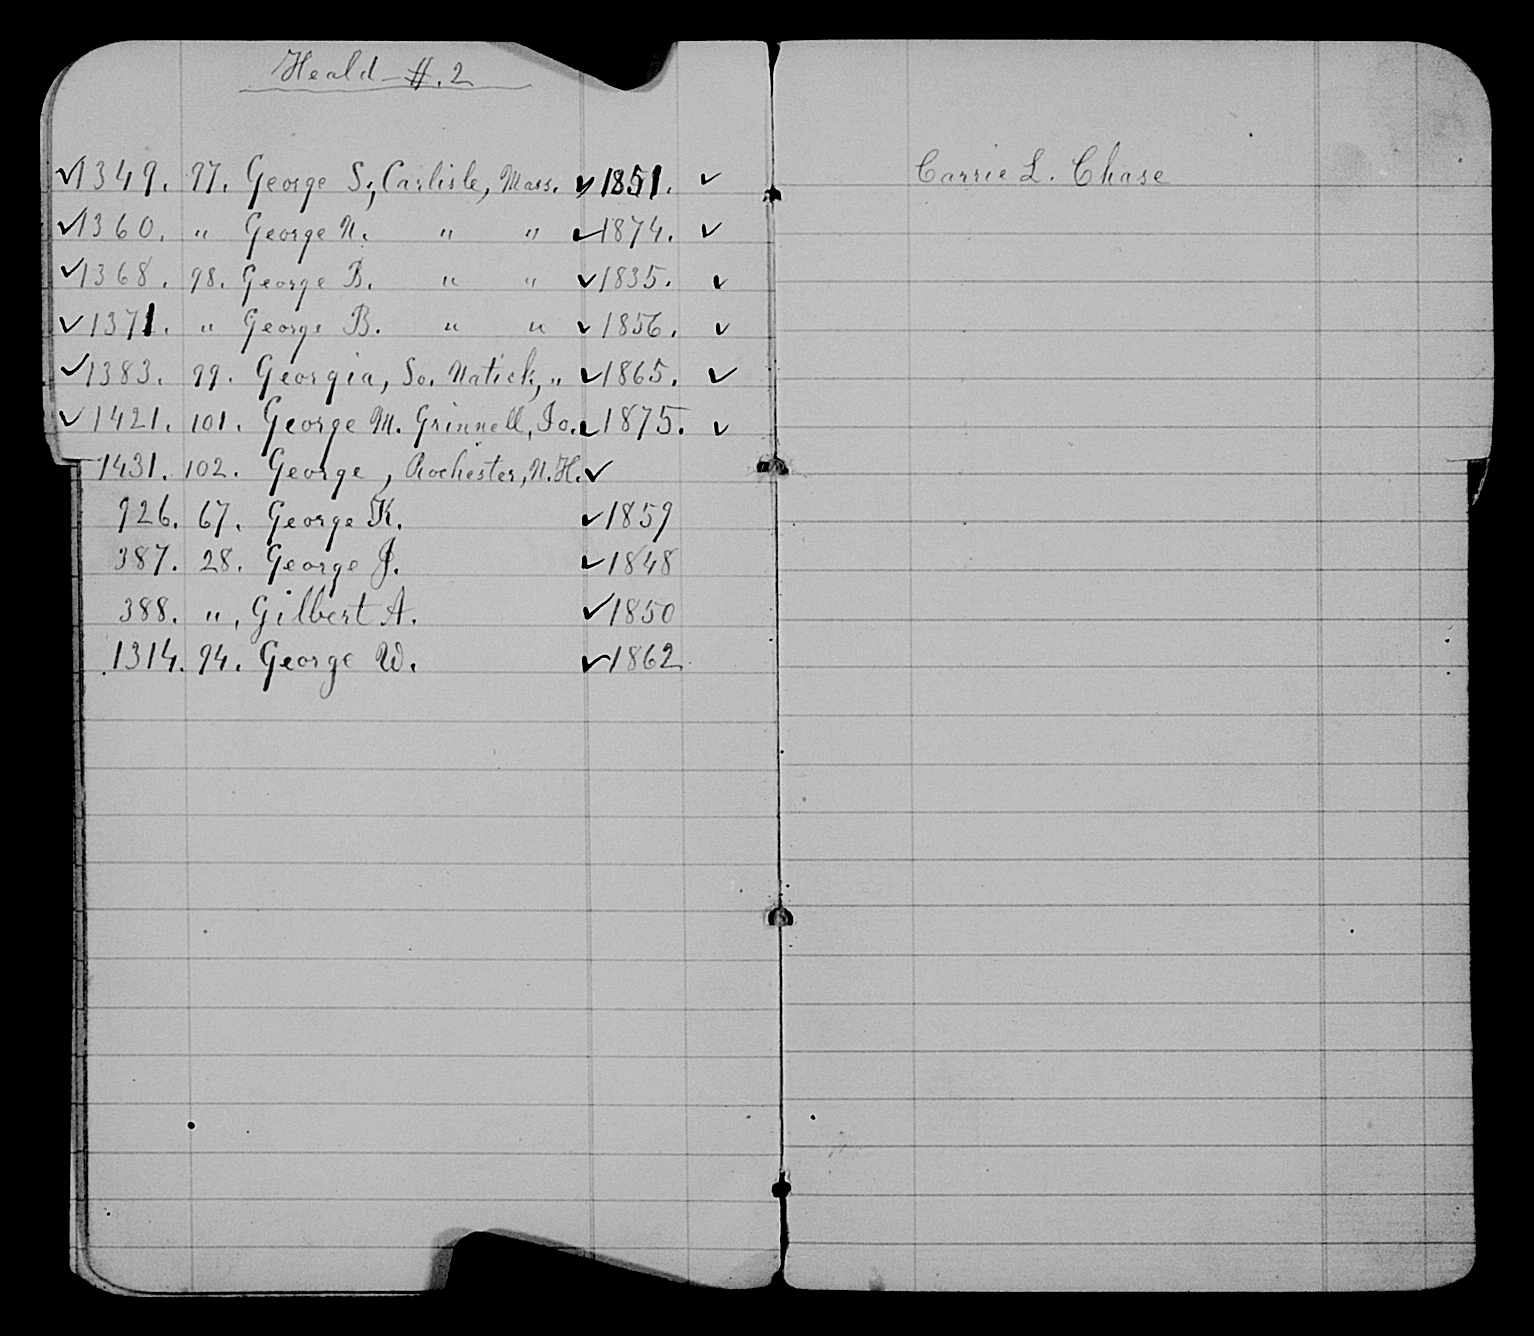 Heald #.2
✓1349. 97. George S., Carlisle, Mass. ✓1851. ✓
✓1360. " George N. " " ✓1874. ✓
✓1368. 98. George B. " " ✓1835. ✓
✓1371. " George B. " " ✓1856. ✓
✓1383. 99. Georgia, So. Natick, " ✓1865. ✓
✓1421. 101. George M. Grinnell, Io. ✓1875. ✓
1431. 102. George, Rochester, N.H. ✓
926. 67. George K. ✓1859
387. 28. George J. ✓1848
388. ", Gilbert A. ✓1850
1314. 94. George W. ✓1862
Carrie L. Chase